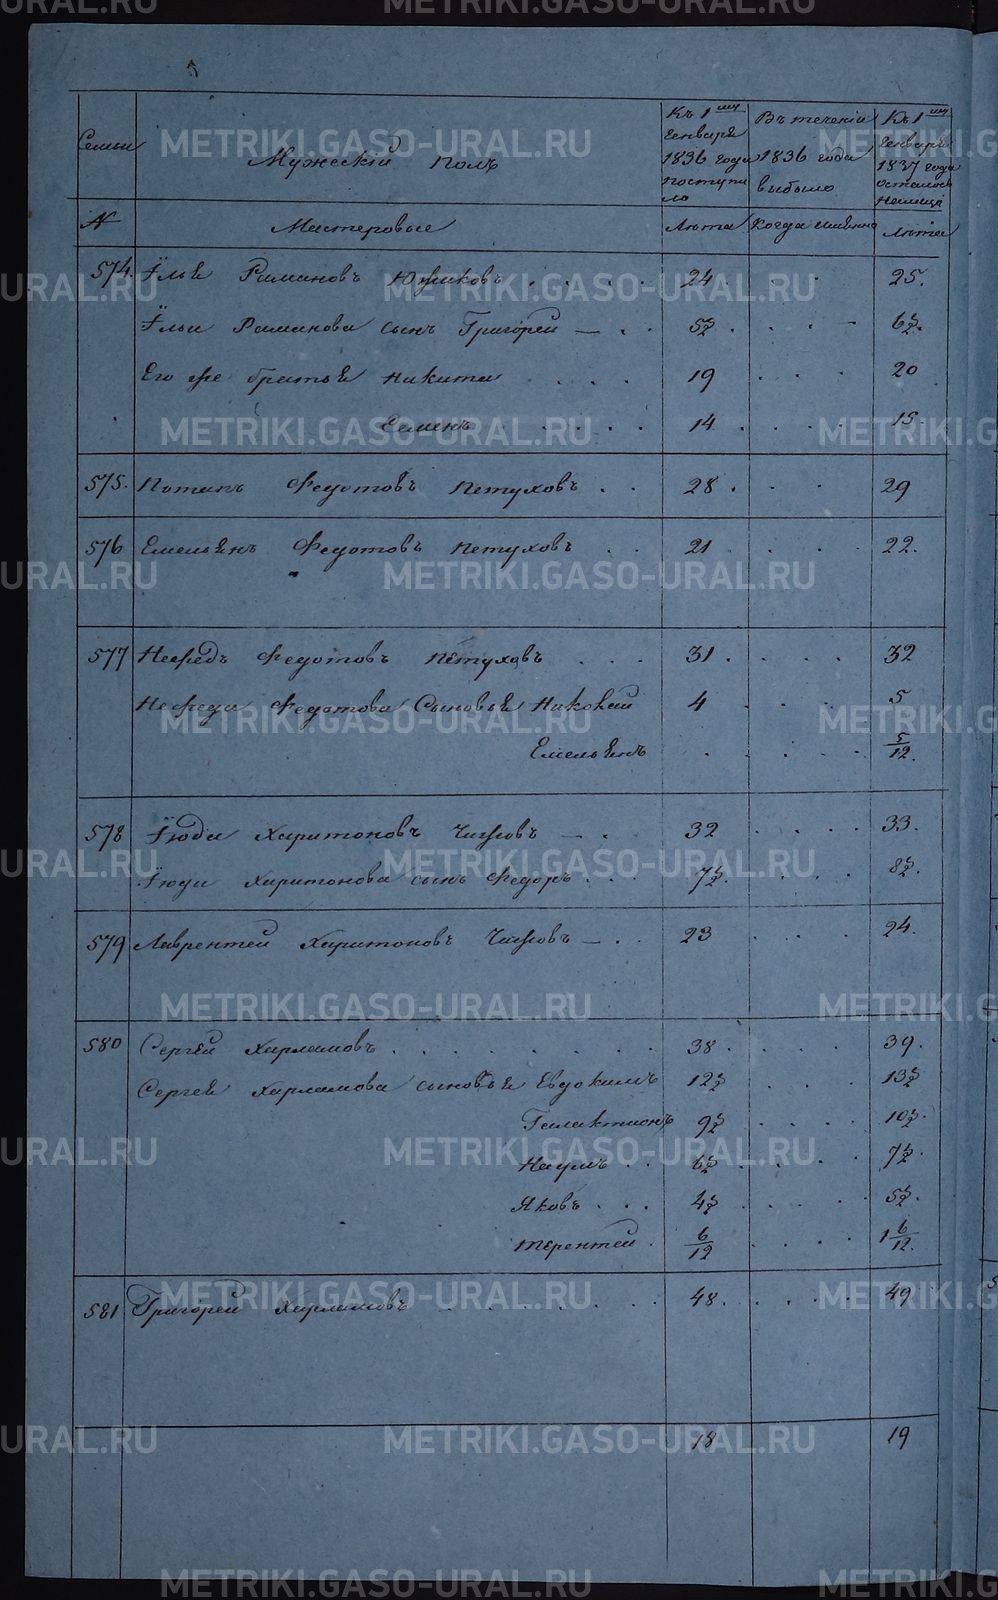 Семьи
Мужескій полъ
Къ 1му Генваря 1836 года поступило
Въ теченіи 1836 года выбыло
Къ 1му Генваря 1837 года осталось налицо
№ Мастеровые Лѣта Когда имянно Лѣта
574. Илья Рамановъ Южаковъ . . . . 24 . . . 25.
Ильи Раманова сынъ Григорей — . . 5½ . . . — 6½.
Его же братья Никита . . . . 19 . . . 20
Семенъ . . . . 14 . . . 15.
575. Потапъ Федотовъ Петуховъ . . 28 . . . 29
576 Емельянъ Федотовъ Петуховъ . . 21 . . . 22.
577 Нефедъ Федотовъ Петуховъ . . . 31 . . . . 32
Нефеда Федотова Сыновья Николай 4 . . . 5
Емельянъ . . . . 5/12.
578 Июда Харитоновъ Чижовъ — . 32 . . . . 33.
Июды Харитонова сынъ Федоръ . . . 7½. . . . 8½.
579 Лаврентей Харитоновъ Чижовъ — . . 23 . . . 24.
580 Сергей Харламовъ . . . . . . . 38 . . . . 39.
Сергея Харламова сыновья Евдокимъ 12½ . . . 13½
Галактионъ 9½ . . . . 10½.
Наумъ . . 6½ . . . . 7½.
Яковъ . . . 4½ . . . 5½.
Терентей . 6/12 . . . . 1 6/12.
581 Григорей Харламовъ . . . . . . 48 . . . . . 49
18 19
METRIKI.GASO-URAL.RU